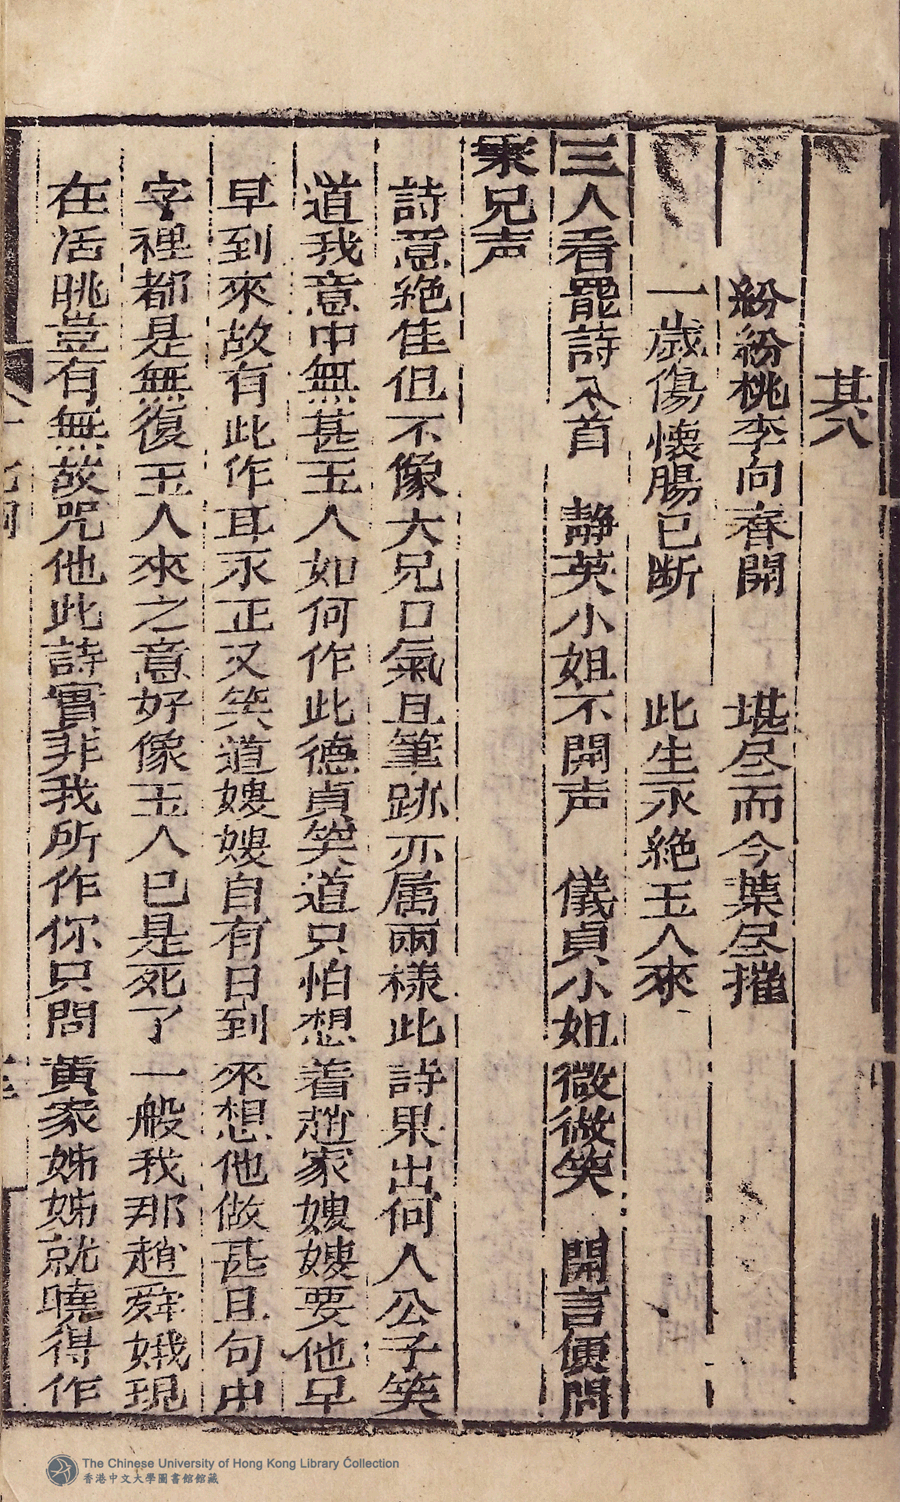 其八
紛紛桃李向春開　堪尽而今葉尽摧
一歲傷懷腸已断　此生永絕玉人來
三人看罷詩八首　靜英小姐不開声　儀貞小姐微微笑　開言便問
秉兄声
詩意絕佳但不像大兄口氣且筆跡亦属兩樣此詩果出何人公子笑
道我意中無甚玉人如何作此德貞笑道只怕想着趙家嫂嫂要他早
早到來故有此作耳永正又笑道嫂嫂自有日到來想他做甚且句中
字裡都是無復玉人來之意好像玉人已是死了一般我那趙舜娥現
在活眺豈有無故咒他此詩實非我所作你只問黄家姊姊就曉得作
The Chinese University of Hong Kong Library Collection
香港中文大學圖書館館藏